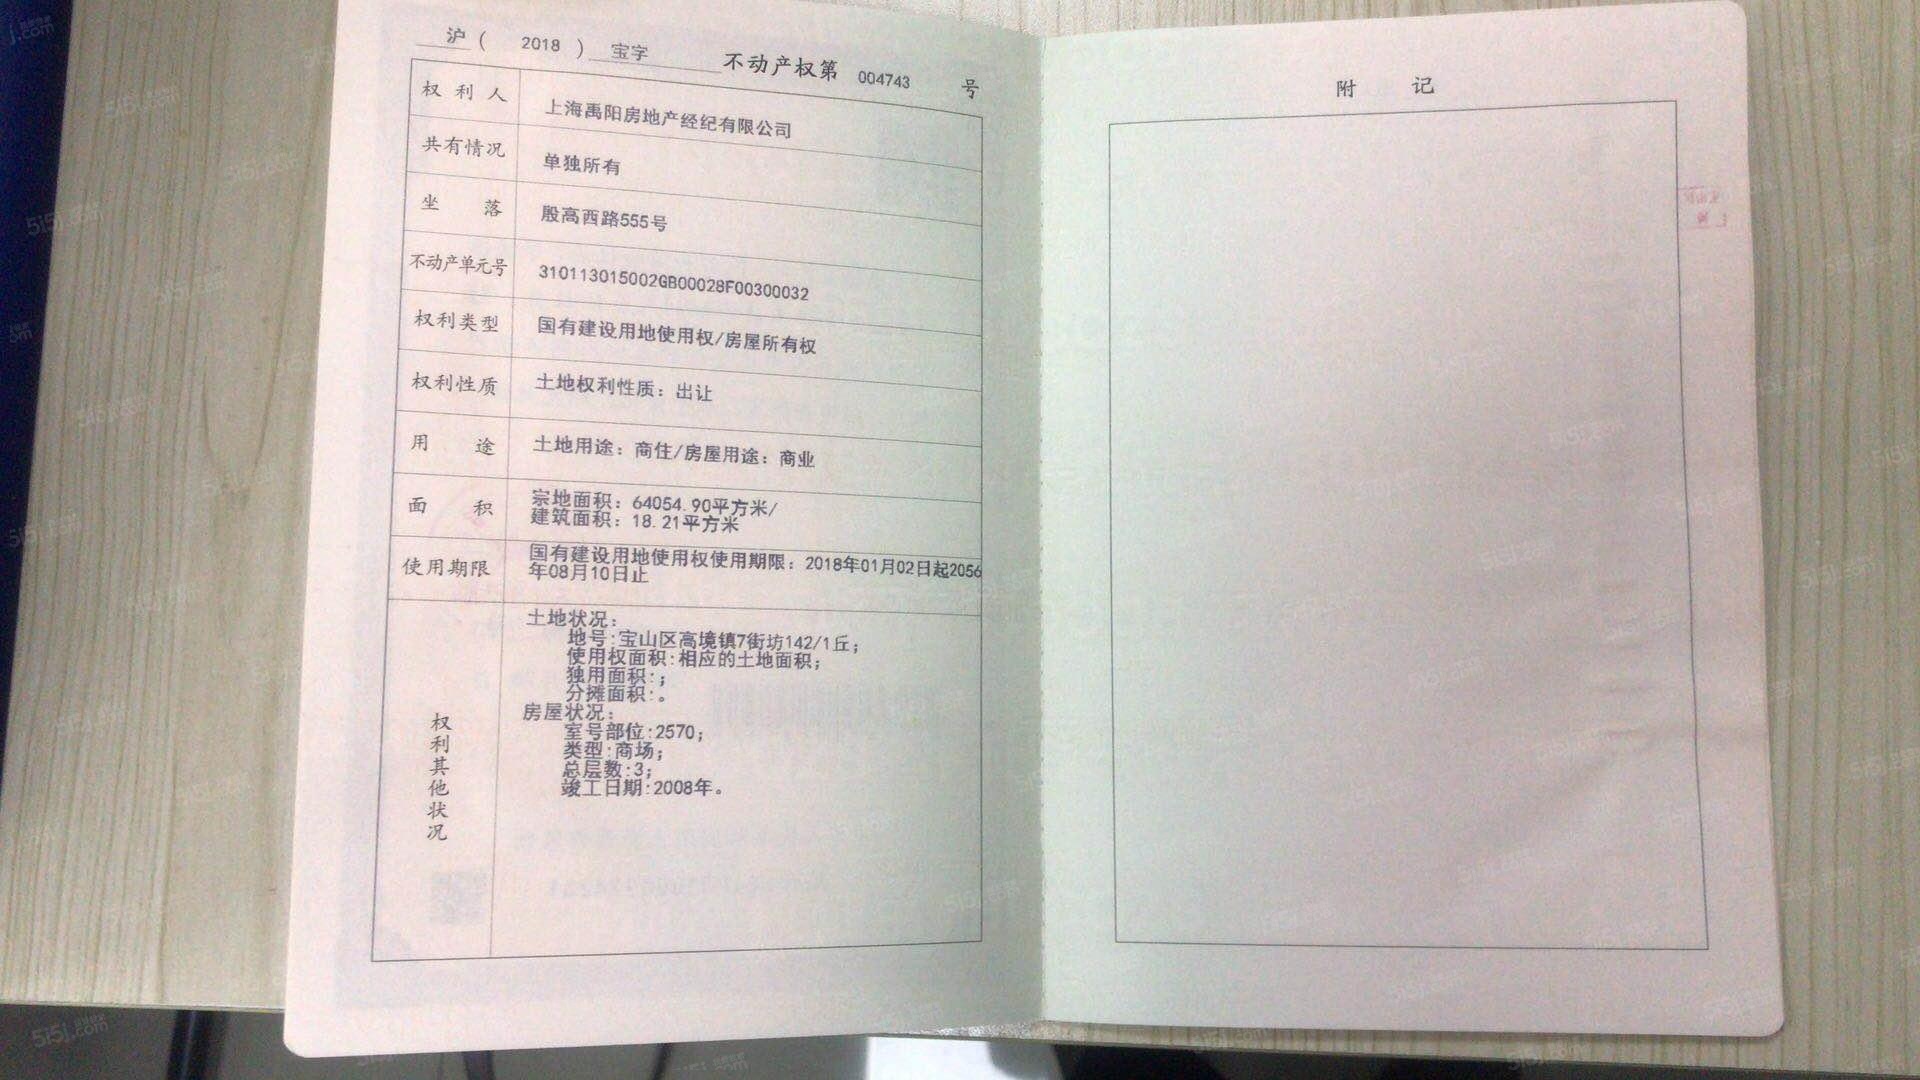 沪 ( 2018 ) 宝字 不动产权第 004743 号
权利人 上海禹阳房地产经纪有限公司
共有情况 单独所有
坐落 殷高西路555号
不动产单元号 310113015002GB00028F00300032
权利类型 国有建设用地使用权/房屋所有权
权利性质 土地权利性质：出让
用途 土地用途：商住/房屋用途：商业
面积 宗地面积：64054.90平方米/
建筑面积：18.21平方米
使用期限 国有建设用地使用权使用期限：2018年01月02日起2056
年08月10日止
权利其他状况
土地状况：
地号:宝山区高境镇7街坊142/1丘；
使用权面积:相应的土地面积；
独用面积:；
分摊面积:。
房屋状况：
室号部位:2570；
类型:商场；
总层数:3；
竣工日期:2008年。
附记
5i5j.com